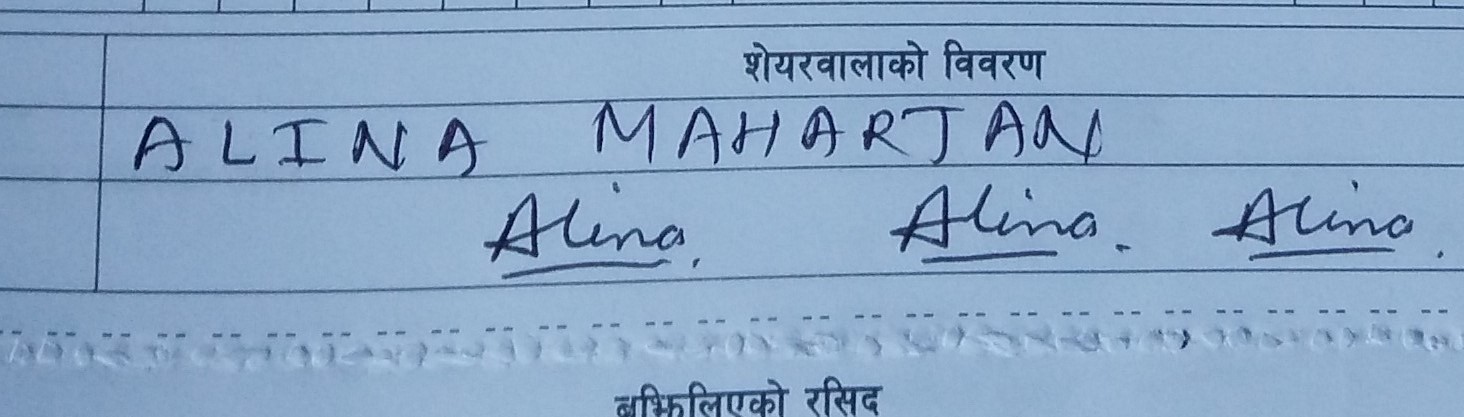 शेयरवालाको विवरण
ALINA MAHARJAN
Alina. Alina. Alina.
बुझिलिएको रसिद